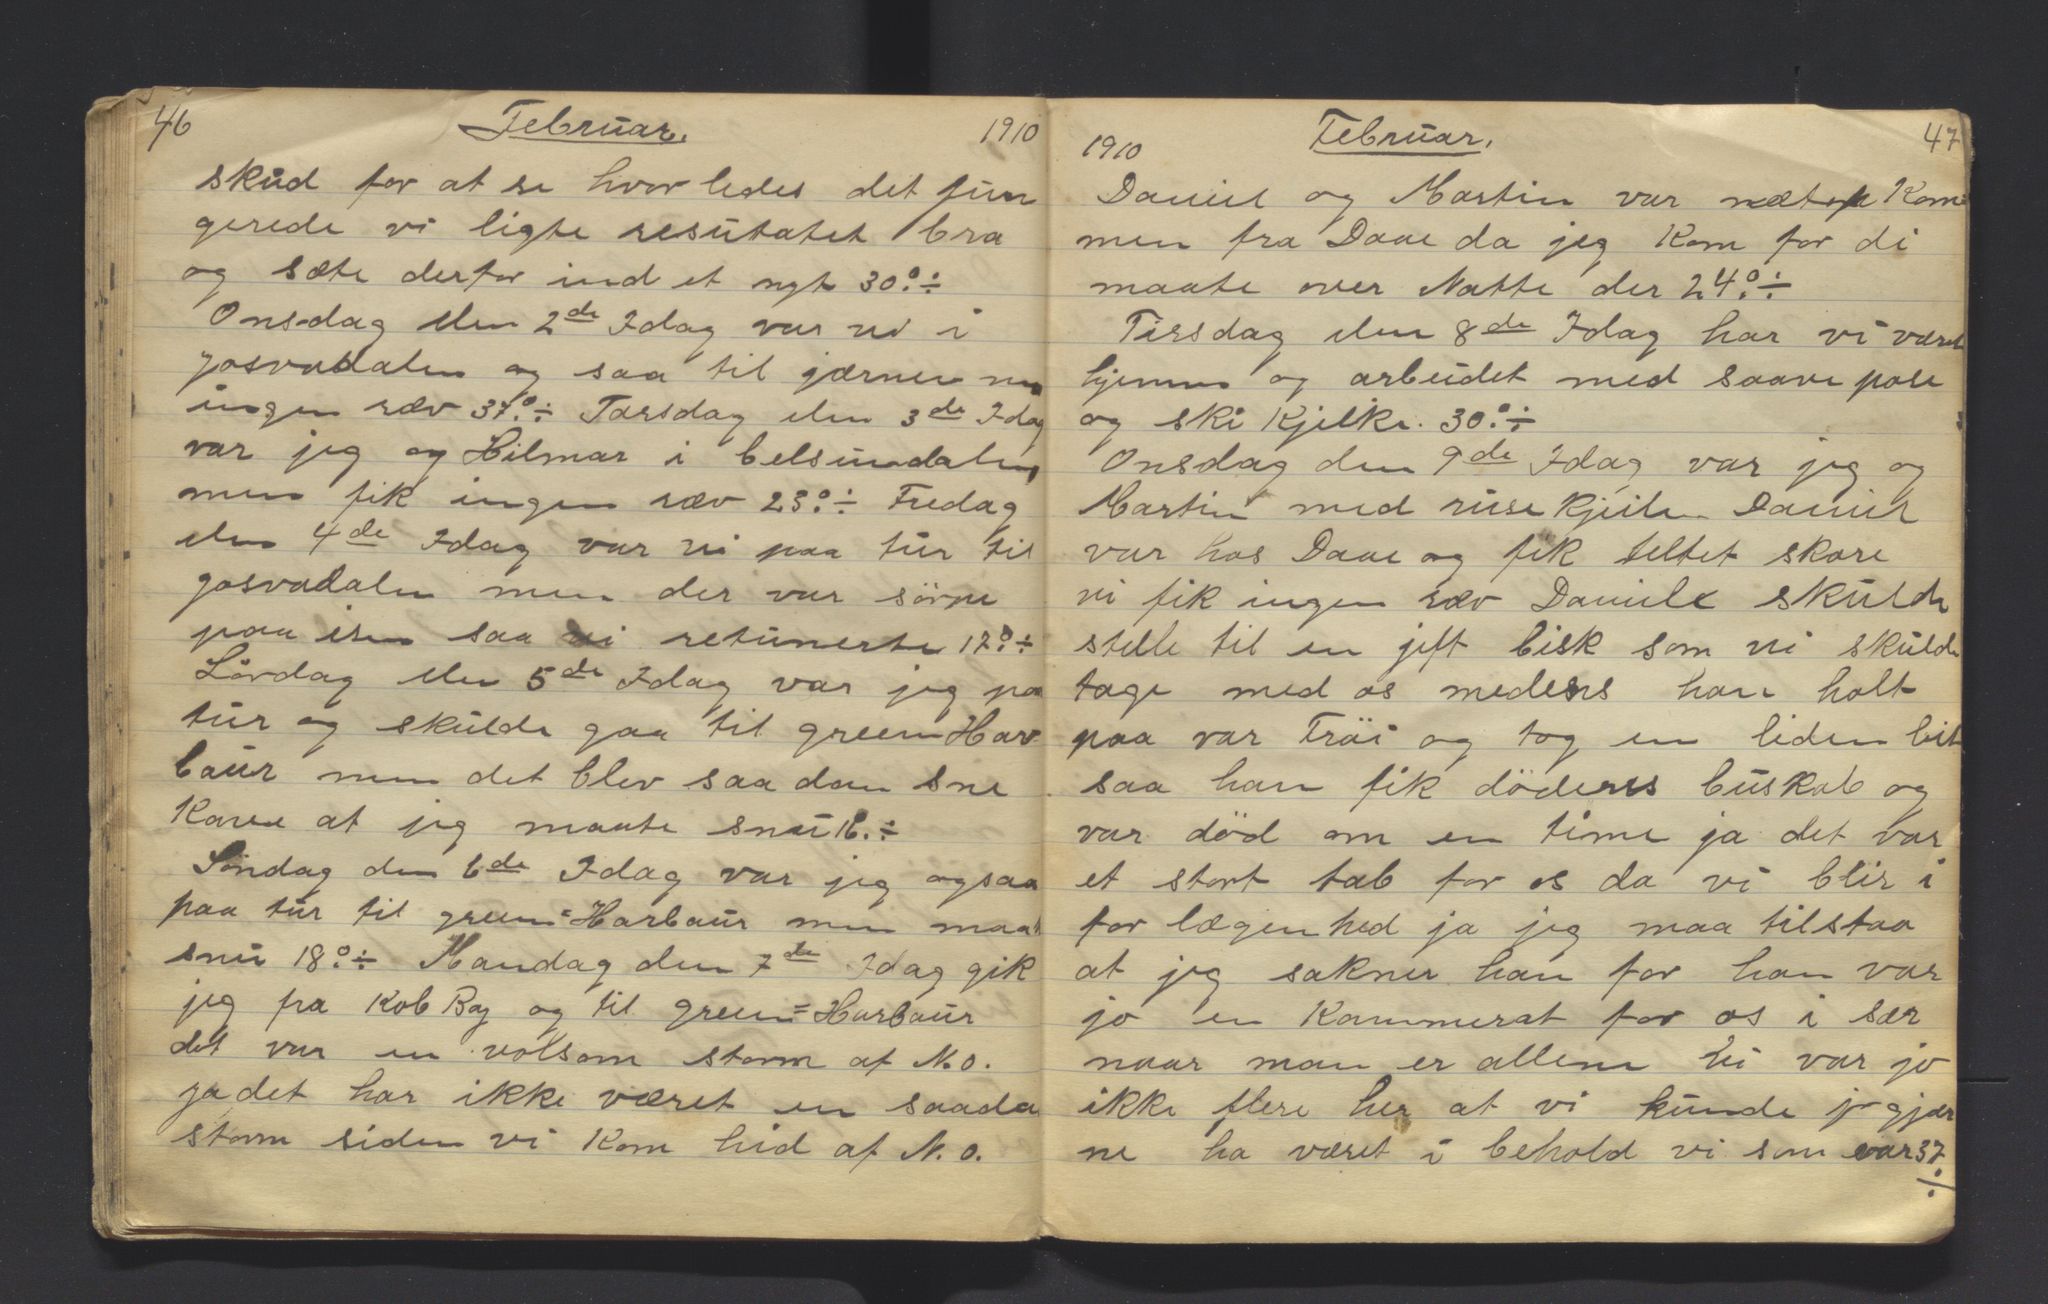 46 Februar. 1910
skud for at se hvorledes det fun
gerede vi ligte resutatet bra
og sæte derfor ind et nyt 30.° ÷
Onsdag den 2de Idag var vi i
josvadalen og saa til jærnene men
ingen ræv 37.° ÷ Torsdag den 3de Idag
var jeg og Hilmar i belsundalen
men fik ingen ræv 23.° ÷ Fredag
den 4de Idag var vi paa tur til
josvadalen men der var sörpe
paa isen saa vi returnerte 17.° ÷
Lördag den 5de Idag var jeg paa
tur og skulde gaa til green Har
baur men det blev saa dan sne
Kave at jeg maate snu 16. ÷
Söndag den 6de Idag var jeg ogsaa
paa tur til green=Harbaur men maat
snu 18.° ÷ Mandag den 7de Idag gik
jeg fra Kob Bay og til green=Harbaur
det var en volsom storm af N.O.
ja det har ikke været en saadan
storm siden vi Kom hid af N.O.
1910 Februar. 47
Daniel og Martin var nætop Kom
men fra Daae da jeg Kom for di
maate over Natte der 24.° ÷
Tirsdag den 8de Idag har vi været
hjemme og arbeidet med saave pose
og ski Kjelke. 30.° ÷
Onsdag den 9de Idag var jeg og
Martin med ruse Kjeilen Daniel
var hos Daae og fik teltet skore
vi fik ingen ræv Daniel skulde
stelle til en jift bisk som vi skulde
tage med os medens han holt
paa var Fröi og tog en liden bit
saa han fik dödens buskab og
var död om en time ja det var
et stort tab for os da vi blir i
for lægenhed ja jeg maa tilstaa
at jeg sakner han for han var
jo en Kammerat for os i sær
naar man er allene vi var jo
ikke flere her at vi kunde jo gjær
ne ha været i behold vi som var 37. ÷